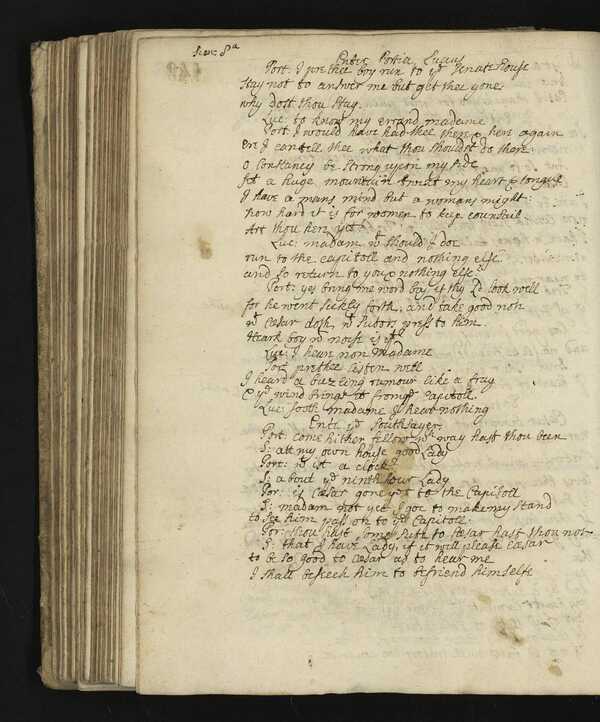 Scen: 8ª
Enter Portia Lucius
Port: I prethee boy run to yᵉ Senate house
Stay not to answer me but get thee gone
why dost thou stay.
Luc: to know my errand madame
Port: I would have had thee there & here again
Ere I can tell thee what thou shouldst do there.
O Constancy be strong upon my side
Set a huge mountain twixt my heart & tongue
I have a mans mind but a womans might
how hard it is for women to keep counsail
Art thou here yet?
Luc: madam wᵗ should I doe
run to the capitoll and nothing else
and so return to you & nothing else?
Port: yes bring me word boy if thy Ld look well
for he went sickly forth, and take good note
wᵗ Cæsar doth, wᵗ sutors press to him.
Heark boy wᵗ noise is yᵗ
Luc: I hear non Madame
Por: prethee listen well
I heard a buzling rumour like a fray
& yᵉ wind brings it from yᵉ Capitoll.
Luc: Sooth madame I hear nothing
Ent: yᵉ Southsayer.
Port: come hither fellow wᶜʰ way hast thou been
S: att my own house good Lady
Port: wᵗ ist a clock?
S: about yᵉ ninth hour Lady
Por: is Cæsar gone yet to the Capitoll
S: madam not yet I goe to make my stand
to see him pass on to yᵉ Capitoll.
Por: thou hast some sute to Cæsar hast thou not
S: that I have Lady, if it will please Cæsar
to be so good to Cæsar as to hear me
I shall beseech him to befriend himselfe